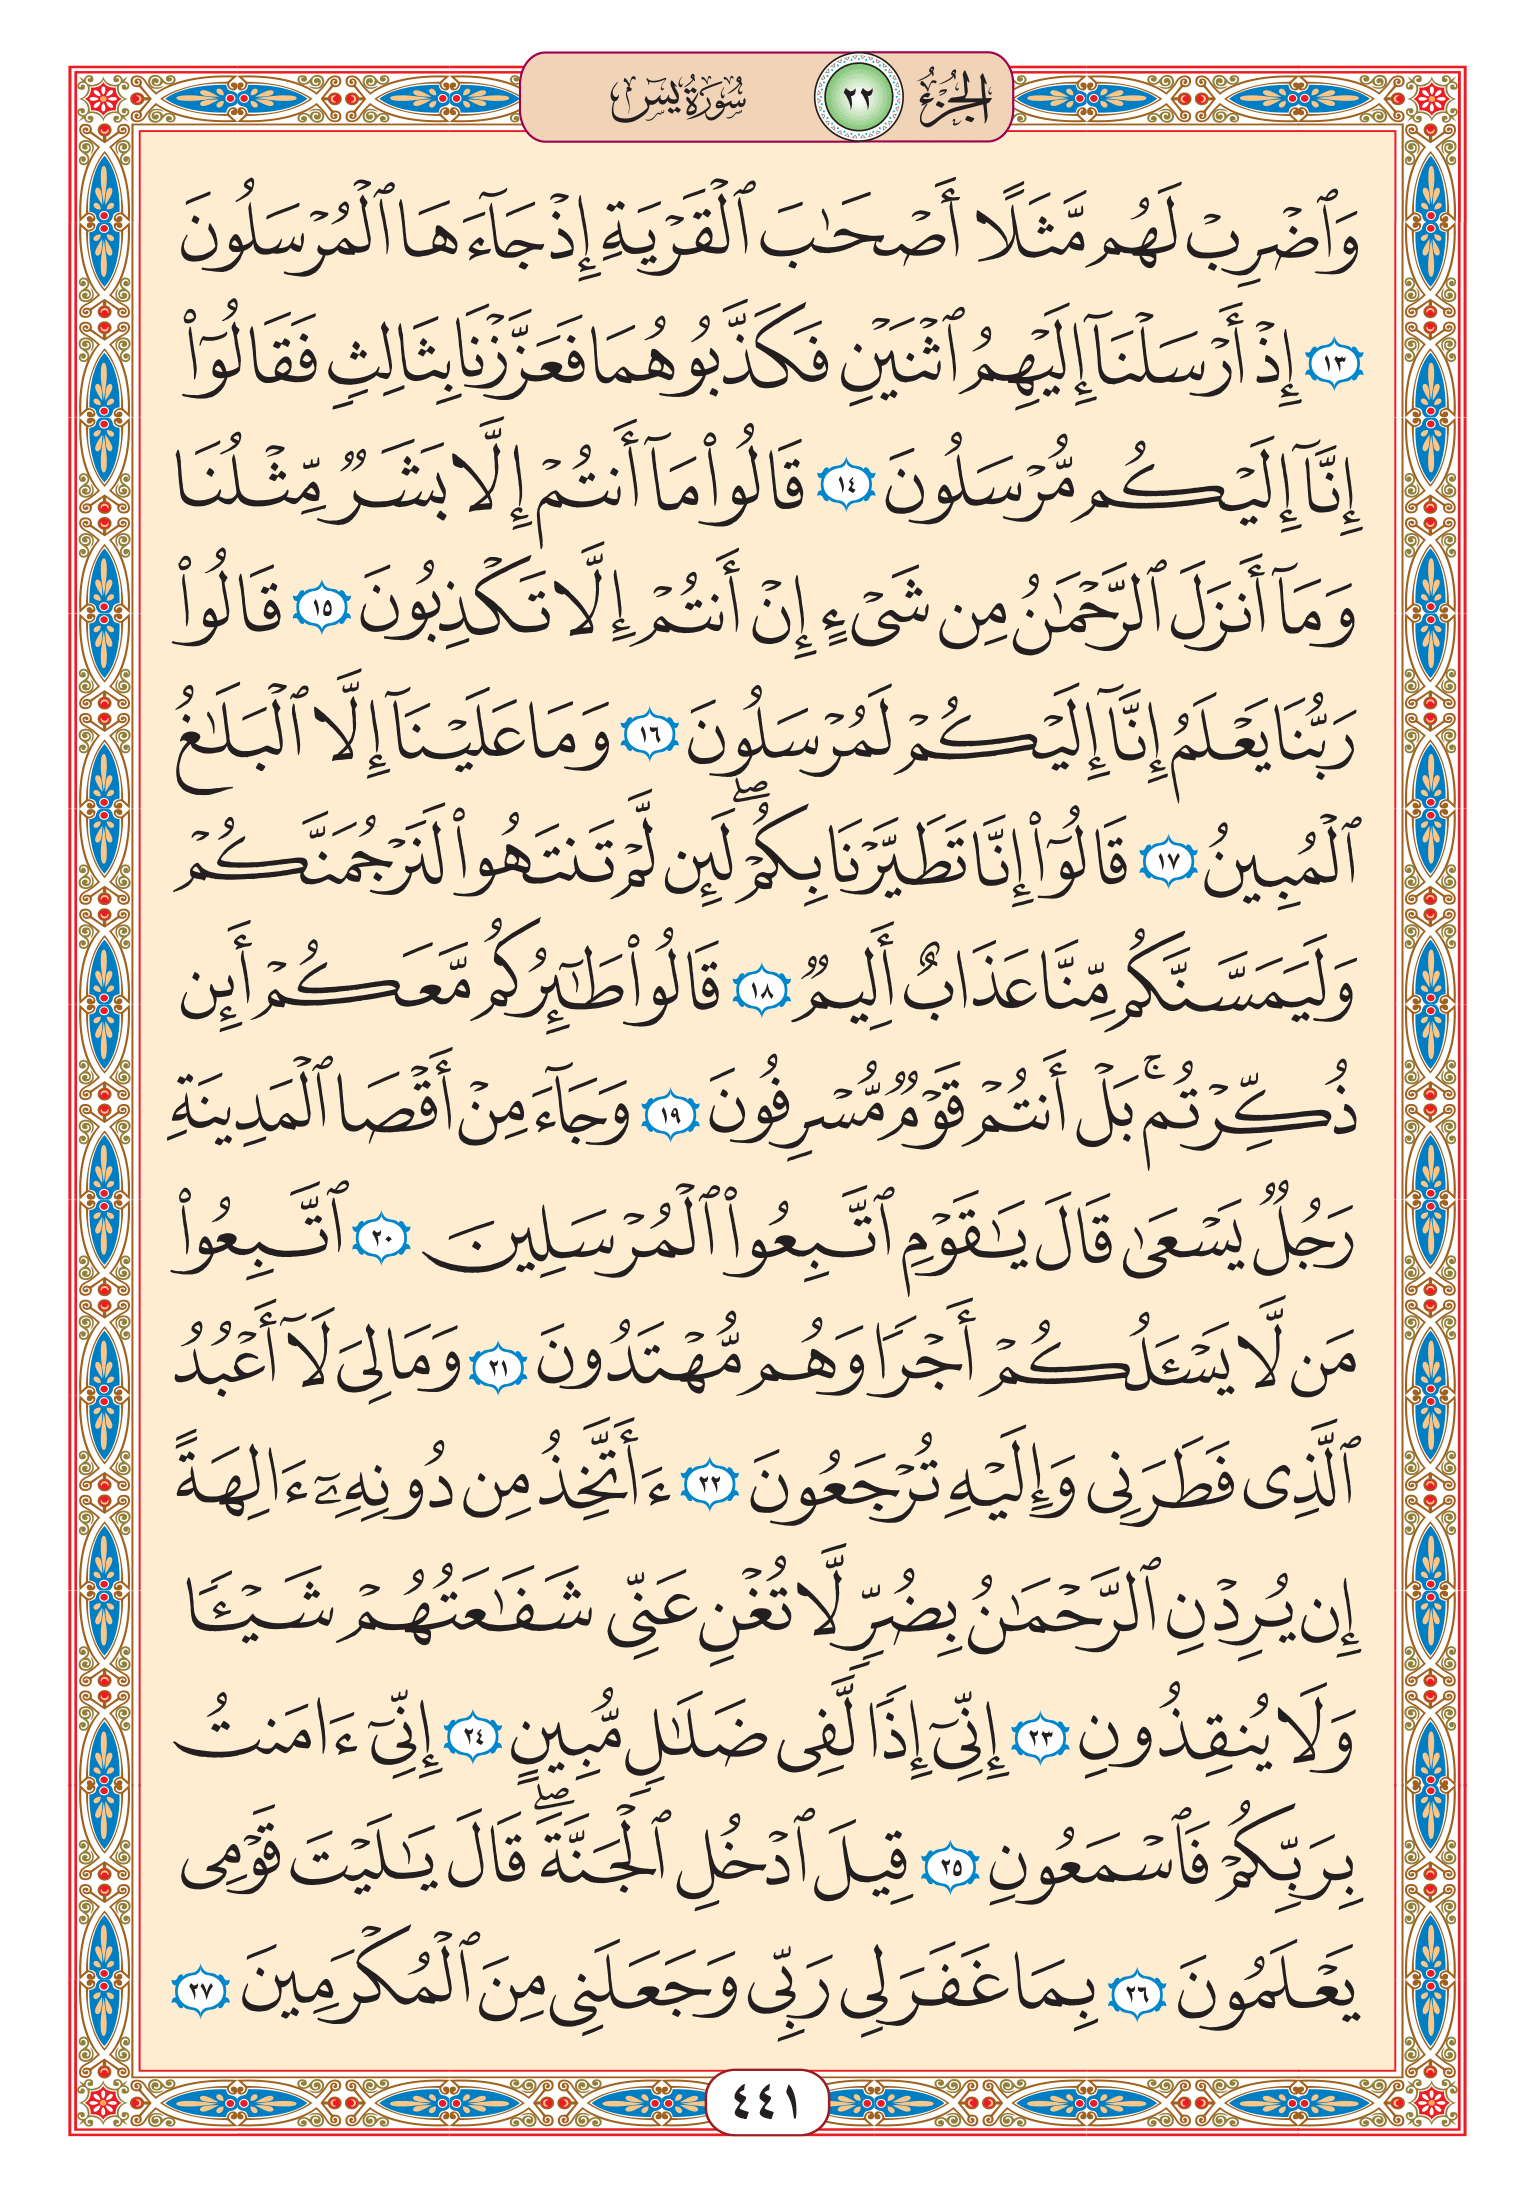 الجزء ٢٢ سورة يس
وَٱضۡرِبۡ لَهُم مَّثَلًا أَصۡحَٰبَ ٱلۡقَرۡيَةِ إِذۡ جَآءَهَا ٱلۡمُرۡسَلُونَ
١٣ إِذۡ أَرۡسَلۡنَآ إِلَيۡهِمُ ٱثۡنَيۡنِ فَكَذَّبُوهُمَا فَعَزَّزۡنَا بِثَالِثٖ فَقَالُوٓاْ
إِنَّآ إِلَيۡكُم مُّرۡسَلُونَ ١٤ قَالُواْ مَآ أَنتُمۡ إِلَّا بَشَرٞ مِّثۡلُنَا
وَمَآ أَنزَلَ ٱلرَّحۡمَٰنُ مِن شَيۡءٍ إِنۡ أَنتُمۡ إِلَّا تَكۡذِبُونَ ١٥ قَالُواْ
رَبُّنَا يَعۡلَمُ إِنَّآ إِلَيۡكُمۡ لَمُرۡسَلُونَ ١٦ وَمَا عَلَيۡنَآ إِلَّا ٱلۡبَلَٰغُ
ٱلۡمُبِينُ ١٧ قَالُوٓاْ إِنَّا تَطَيَّرۡنَا بِكُمۡۖ لَئِن لَّمۡ تَنتَهُواْ لَنَرۡجُمَنَّكُمۡ
وَلَيَمَسَّنَّكُم مِّنَّا عَذَابٌ أَلِيمٞ ١٨ قَالُواْ طَٰٓئِرُكُم مَّعَكُمۡ أَئِن
ذُكِّرۡتُمۚ بَلۡ أَنتُمۡ قَوۡمٞ مُّسۡرِفُونَ ١٩ وَجَآءَ مِنۡ أَقۡصَا ٱلۡمَدِينَةِ
رَجُلٞ يَسۡعَىٰ قَالَ يَٰقَوۡمِ ٱتَّبِعُواْ ٱلۡمُرۡسَلِينَ ٢٠ ٱتَّبِعُواْ
مَن لَّا يَسۡـَٔلُكُمۡ أَجۡرٗا وَهُم مُّهۡتَدُونَ ٢١ وَمَالِيَ لَآ أَعۡبُدُ
ٱلَّذِي فَطَرَنِي وَإِلَيۡهِ تُرۡجَعُونَ ٢٢ ءَأَتَّخِذُ مِن دُونِهِۦٓ ءَالِهَةً
إِن يُرِدۡنِ ٱلرَّحۡمَٰنُ بِضُرّٖ لَّا تُغۡنِ عَنِّي شَفَٰعَتُهُمۡ شَيۡـٔٗا
وَلَا يُنقِذُونِ ٢٣ إِنِّيٓ إِذٗا لَّفِي ضَلَٰلٖ مُّبِينٍ ٢٤ إِنِّيٓ ءَامَنتُ
بِرَبِّكُمۡ فَٱسۡمَعُونِ ٢٥ قِيلَ ٱدۡخُلِ ٱلۡجَنَّةَۖ قَالَ يَٰلَيۡتَ قَوۡمِي
يَعۡلَمُونَ ٢٦ بِمَا غَفَرَ لِي رَبِّي وَجَعَلَنِي مِنَ ٱلۡمُكۡرَمِينَ ٢٧
٤٤١